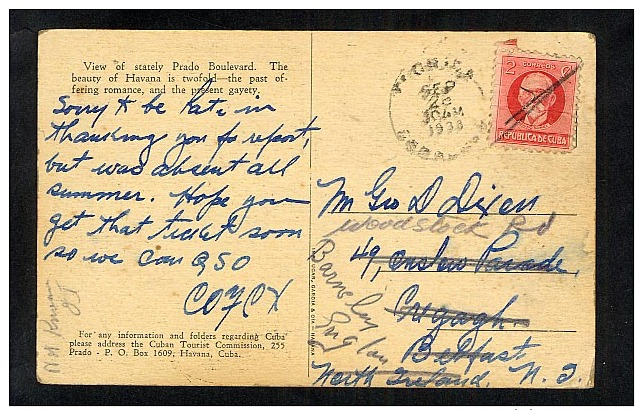 View of stately Prado Boulevard. The
beauty of Havana is twofold—the past of-
fering romance, and the present gayety.
Sorry to be late in
thanking you for report,
but was absent all
summer. Hope you
get that ticket soon
so we can QSO
CO7CX
For any information and folders regarding Cuba
please address the Cuban Tourist Commission, 255
Prado - P. O. Box 1609, Havana, Cuba.
2 CORREOS 2
REPUBLICA DE CUBA
FLORIDA
SEP
1938
CUBA
Mr Geo D Dixon
Woodstock Rd
49, Onslow Parade,
Cregagh.
Barnsley
England
Belfast
North Ireland. N. I.